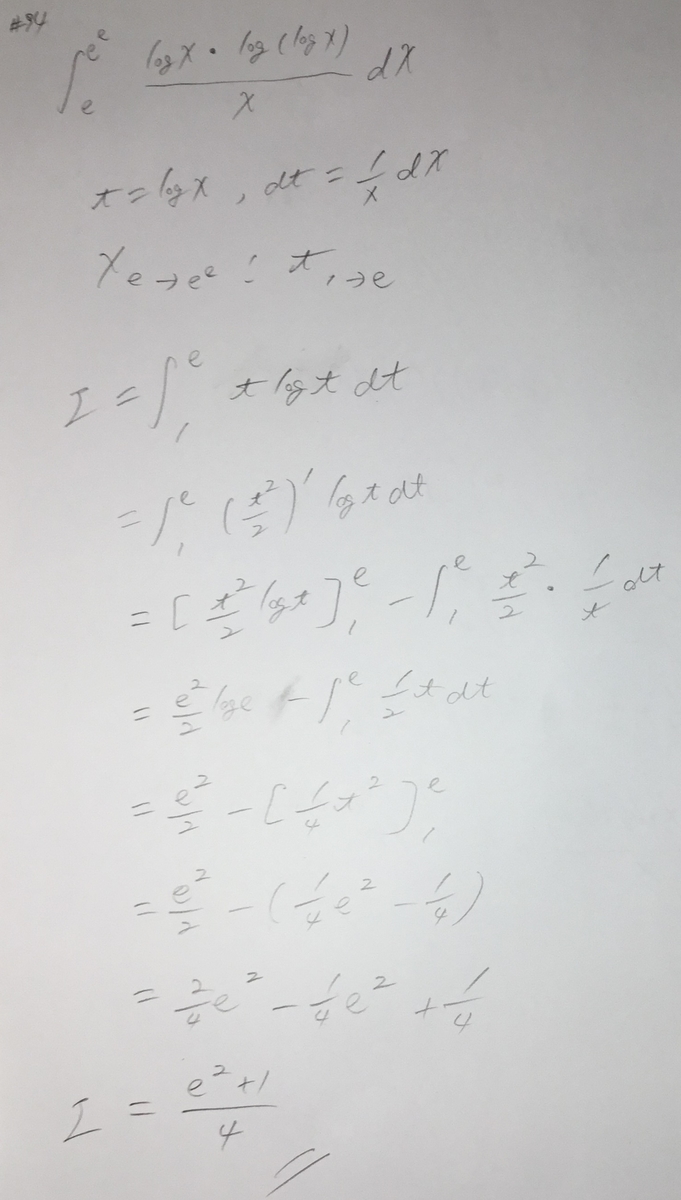 #94
∫_e^{e^e} (log x · log(log x))/x dx
t = log x , dt = 1/x dx
x e→e^e : t 1→e
I = ∫_1^e t log t dt
= ∫_1^e (t²/2)' log t dt
= [t²/2 log t]_1^e - ∫_1^e t²/2 · 1/t dt
= e²/2 log e - ∫_1^e 1/2 t dt
= e²/2 - [1/4 t²]_1^e
= e²/2 - (1/4 e² - 1/4)
= 2/4 e² - 1/4 e² + 1/4
I = (e²+1)/4